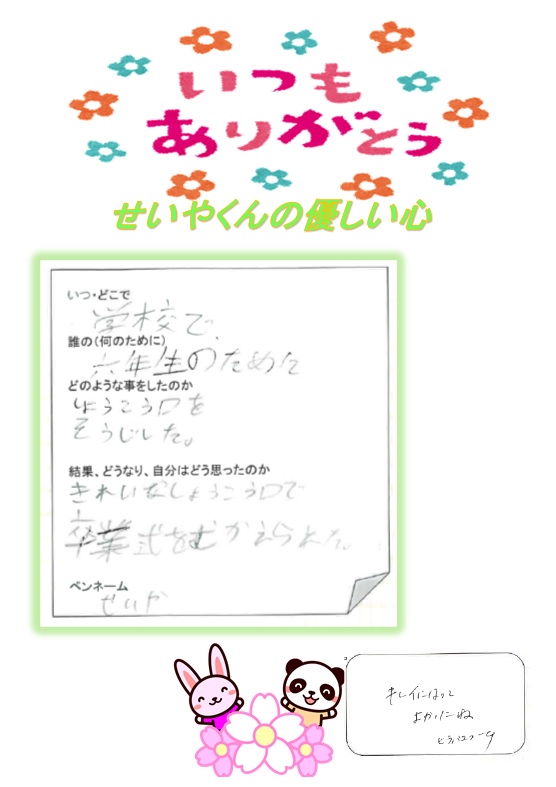 いつも
ありがとう
せいやくんの優しい心
いつ・どこで
学校で、
誰の(何のために)
六年生のために
どのような事をしたのか
しょうこう口を
そうじした。
結果、どうなり、自分はどう思ったのか
きれいなしょうこう口で
卒業式をむかえられた。
ペンネーム
せいや
キレイになって
よかったね